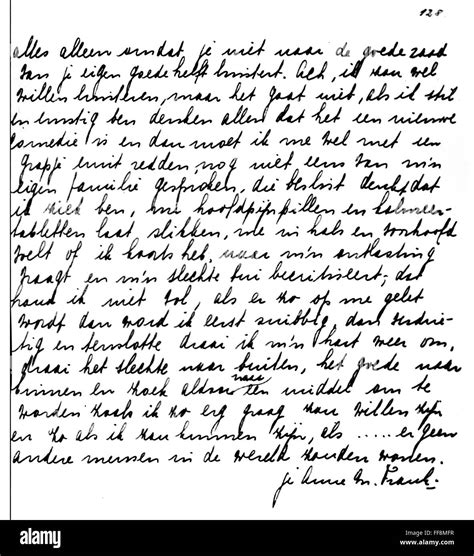 128
alles alleen omdat je niet naar de goede raad
van je eigen goede helft luistert. Ach, ik zou wel
willen luisteren, maar het gaat niet, als ik stil
en ernstig ben denken allen dat het een nieuwe
comedie is en dan moet ik me wel met een
grapje eruit redden, nog niet eens van m'n
eigen familie gesproken, die beslist denkt dat
ik ziek ben, me hoofdpijnpillen en kalmeer-
tabletten laat slikken, me in hals en voorhoofd
voelt of ik koorts heb, naar m'n ontlasting
vraagt en m'n slechte bui becritiseert; dat
houd ik niet vol, als er zo op me gelet
wordt dan word ik eerst snibbig, dan verdrie-
tig en tenslotte draai ik m'n hart weer om,
draai het slechte naar buiten, het goede naar
binnen en zoek aldoor naar een middel om te
worden zoals ik zo erg graag zou willen zijn
en zo als ik zou kunnen zijn, als ..... er geen
andere mensen in de wereld zouden wonen.
je Anne M. Frank.
alamy stock photo
FF8MFR
www.alamy.com